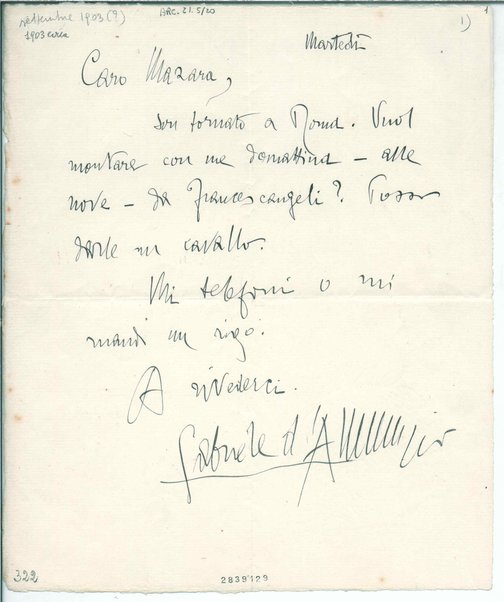 settembre 1903 (?)
1903 circa
ARC. 21. 5/20
1
1)
Martedì
Caro Mazara,
son tornato a Roma. Vuol
montare con me domattina – alle
nove – da Francescangeli? Posso
darle un cavallo.
Mi telefoni o mi
mandi un rigo.
A rivederci.
Gabriele d'Annunzio
322
2839129